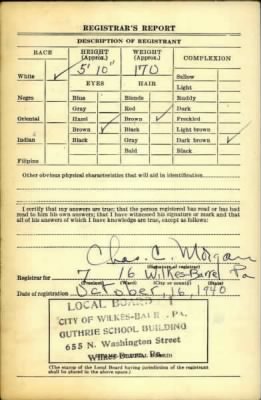 REGISTRAR'S REPORT
DESCRIPTION OF REGISTRANT
RACE HEIGHT (Approx.) WEIGHT (Approx.) COMPLEXION
5' 10" 170
White ✓ Sallow
EYES HAIR Light
Negro Blue Blonde Ruddy
Gray Red Dark
Oriental Hazel Brown ✓ Freckled
Brown ✓ Black Light brown
Indian Black Gray Dark brown ✓
Bald Black
Filipino
Other obvious physical characteristics that will aid in identification
I certify that my answers are true; that the person registered has read or has had
read to him his own answers; that I have witnessed his signature or mark and that
all of his answers of which I have knowledge are true, except as follows:
Chas. C. Morgan
(Signature of registrar)
Registrar for 7 16 Wilkes-Barre Pa
(Precinct) (Ward) (City or county) (State)
Date of registration October, 16, 1940
LOCAL BOARD
CITY OF WILKES-BARRE, PA.
GUTHRIE SCHOOL BUILDING
655 N. Washington Street
Wilkes-Barre, Pa.
(The stamp of the Local Board having jurisdiction of the registrant
shall be placed in the above space.)